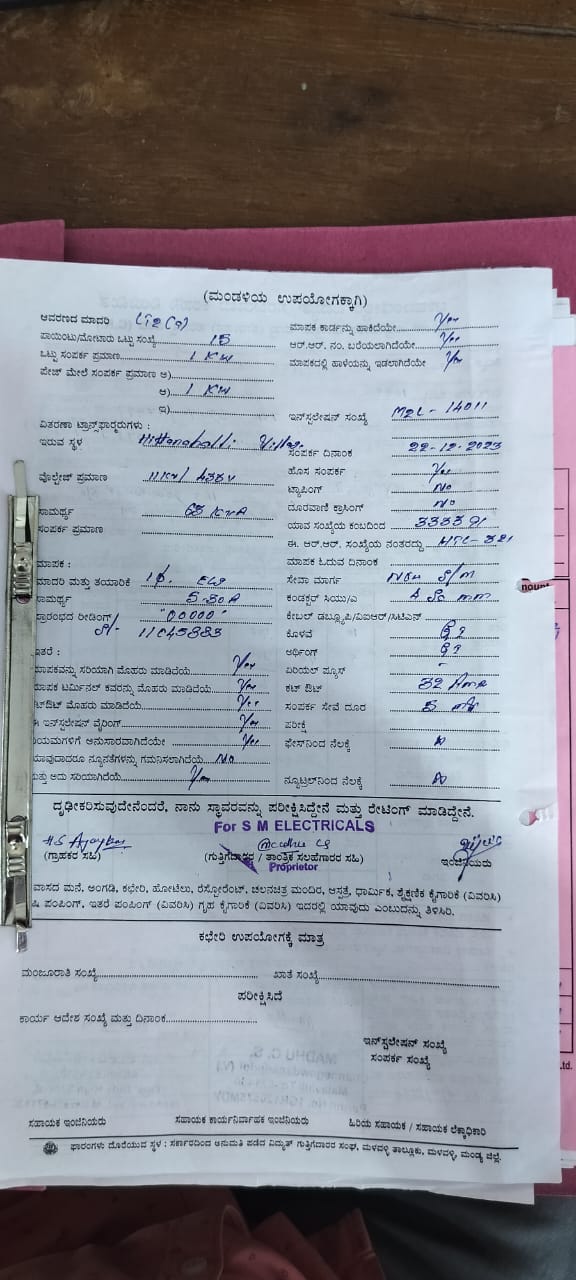 (ಮಂಡಳಿಯ ಉಪಯೋಗಕ್ಕಾಗಿ)
ಆವರಣದ ಮಾದರಿ
ಪಾಯಿಂಟು/ಮೋಟಾರು ಒಟ್ಟು ಸಂಖ್ಯೆ 15
ಒಟ್ಟು ಸಂಪರ್ಕ ಪ್ರಮಾಣ 1 KW
ಪೇಜ್ ಮೇಲೆ ಸಂಪರ್ಕ ಪ್ರಮಾಣ ಅ)
ಆ) 1 KW
ಇ)
ವಿತರಣಾ ಟ್ರಾನ್ಸ್‌ಫಾರ್ಮರುಗಳು :
ಇರುವ ಸ್ಥಳ
ವೋಲ್ಟೇಜ್ ಪ್ರಮಾಣ 11KV/433V
ಸಾಮರ್ಥ್ಯ 63 KVA
ಸಂಪರ್ಕ ಪ್ರಮಾಣ
ಮಾಪಕ :
ಮಾದರಿ ಮತ್ತು ತಯಾರಿಕೆ
ಸಾಮರ್ಥ್ಯ 5-30A
ಪ್ರಾರಂಭದ ರೀಡಿಂಗ್ "00000"
S/- 11045883
ಇತರೆ :
ಮಾಪಕವನ್ನು ಸರಿಯಾಗಿ ಮೊಹರು ಮಾಡಿದೆಯೆ Yes
ಮಾಪಕ ಟರ್ಮಿನಲ್ ಕವರನ್ನು ಮೊಹರು ಮಾಡಿದೆಯೆ Yes
ಕಟ್‌ಔಟ್ ಮೊಹರು ಮಾಡಿದೆಯೆ Yes
ಈ ಇನ್‌ಸ್ಟಲೇಷನ್ ವೈರಿಂಗ್ Yes
ನಿಯಮಗಳಿಗೆ ಅನುಸಾರವಾಗಿದೆಯೇ Yes
ಯಾವುದಾದರೂ ನ್ಯೂನತೆಗಳನ್ನು ಗಮನಿಸಲಾಗಿದೆಯೆ No
ಮತ್ತು ಅದು ಸರಿಯಾಗಿದೆಯೆ Yes
ಮಾಪಕ ಕಾರ್ಡನ್ನು ಹಾಕಿದೆಯೇ Yes
ಆರ್.ಆರ್. ನಂ. ಬರೆಯಲಾಗಿದೆಯೇ Yes
ಮಾಪಕದಲ್ಲಿ ಹಾಳೆಯನ್ನು ಇಡಲಾಗಿದೆಯೇ Yes
ಇನ್‌ಸ್ಟಲೇಷನ್ ಸಂಖ್ಯೆ M2L-14011
ಸಂಪರ್ಕ ದಿನಾಂಕ 22-12-2023
ಹೊಸ ಸಂಪರ್ಕ Yes
ಟ್ಯಾಪಿಂಗ್ No
ದೂರವಾಣಿ ಕ್ರಾಸಿಂಗ್ No
ಯಾವ ಸಂಖ್ಯೆಯ ಕಂಬದಿಂದ
ಈ. ಆರ್.ಆರ್. ಸಂಖ್ಯೆಯ ನಂತರದ್ದು
ಮಾಪಕ ಓದುವ ದಿನಾಂಕ
ಸೇವಾ ಮಾರ್ಗ New S/M
ಕಂಡಕ್ಟರ್ ಸಿಯು/ಎ 4 Sq mm
ಕೇಬಲ್ ಡಬ್ಲ್ಯೂಪಿ/ವಿಐಆರ್/ಸಿಟಿಎನ್
ಕೊಳವೆ GI
ಅರ್ಥಿಂಗ್ GI
ಏರಿಯಲ್ ಫ್ಯೂಸ್ -
ಕಟ್ ಔಟ್ 32 Amp
ಸಂಪರ್ಕ ಸೇವೆ ದೂರ 5 mtr
ಪರೀಕ್ಷೆ
ಫೇಸ್‌ನಿಂದ ನೆಲಕ್ಕೆ
ನ್ಯೂಟ್ರಲ್‌ನಿಂದ ನೆಲಕ್ಕೆ
ದೃಢೀಕರಿಸುವುದೇನೆಂದರೆ, ನಾನು ಸ್ಥಾವರವನ್ನು ಪರೀಕ್ಷಿಸಿದ್ದೇನೆ ಮತ್ತು ರೇಟಿಂಗ್ ಮಾಡಿದ್ದೇನೆ.
For S M ELECTRICALS
(ಗ್ರಾಹಕರ ಸಹಿ)
(ಗುತ್ತಿಗೆದಾರರ / ತಾಂತ್ರಿಕ ಸಲಹೆಗಾರರ ಸಹಿ)
ಇಂಜಿನಿಯರು
Proprietor
ವಾಸದ ಮನೆ, ಅಂಗಡಿ, ಕಛೇರಿ, ಹೋಟೆಲು, ರೆಸ್ಟೋರೆಂಟ್, ಚಲನಚಿತ್ರ ಮಂದಿರ, ಆಸ್ಪತ್ರೆ, ಧಾರ್ಮಿಕ, ಶೈಕ್ಷಣಿಕ ಕೈಗಾರಿಕೆ (ವಿವರಿಸಿ)
ಪಂಪಿಂಗ್, ಇತರೆ ಪಂಪಿಂಗ್ (ವಿವರಿಸಿ) ಗೃಹ ಕೈಗಾರಿಕೆ (ವಿವರಿಸಿ) ಇದರಲ್ಲಿ ಯಾವುದು ಎಂಬುದನ್ನು ತಿಳಿಸಿರಿ.
ಕಛೇರಿ ಉಪಯೋಗಕ್ಕೆ ಮಾತ್ರ
ಮಂಜೂರಾತಿ ಸಂಖ್ಯೆ ಖಾತೆ ಸಂಖ್ಯೆ
ಪರೀಕ್ಷಿಸಿದೆ
ಕಾರ್ಯ ಆದೇಶ ಸಂಖ್ಯೆ ಮತ್ತು ದಿನಾಂಕ
ಇನ್‌ಸ್ಟಲೇಷನ್ ಸಂಖ್ಯೆ
ಸಂಪರ್ಕ ಸಂಖ್ಯೆ
ಸಹಾಯಕ ಇಂಜಿನಿಯರು ಸಹಾಯಕ ಕಾರ್ಯನಿರ್ವಾಹಕ ಇಂಜಿನಿಯರು ಹಿರಿಯ ಸಹಾಯಕ / ಸಹಾಯಕ ಲೆಕ್ಕಾಧಿಕಾರಿ
ಫಾರಂಗಳು ದೊರೆಯುವ ಸ್ಥಳ : ಸರ್ಕಾರದಿಂದ ಅನುಮತಿ ಪಡೆದ ವಿದ್ಯುತ್ ಗುತ್ತಿಗೆದಾರರ ಸಂಘ, ಮಳವಳ್ಳಿ ತಾಲ್ಲೂಕು, ಮಳವಳ್ಳಿ, ಮಂಡ್ಯ ಜಿಲ್ಲೆ.